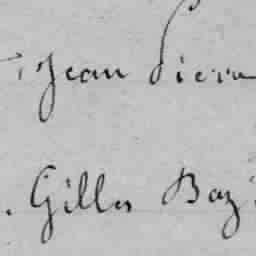 Jean Pierre
Gilles Baz